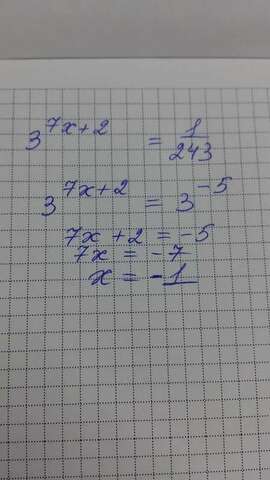 3^{7x+2} = \frac{1}{243}
3^{7x+2} = 3^{-5}
7x + 2 = -5
7x = -7
x = -1